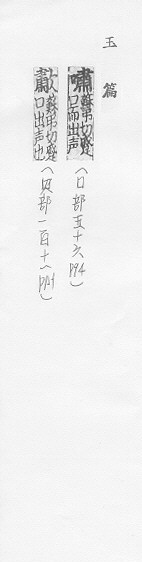 玉篇
嘯 蘇弔切蹙口而出声 (口部五十六 P94)
歗 蘇弔切蹙口出声也 (欠部一百十八 P181)